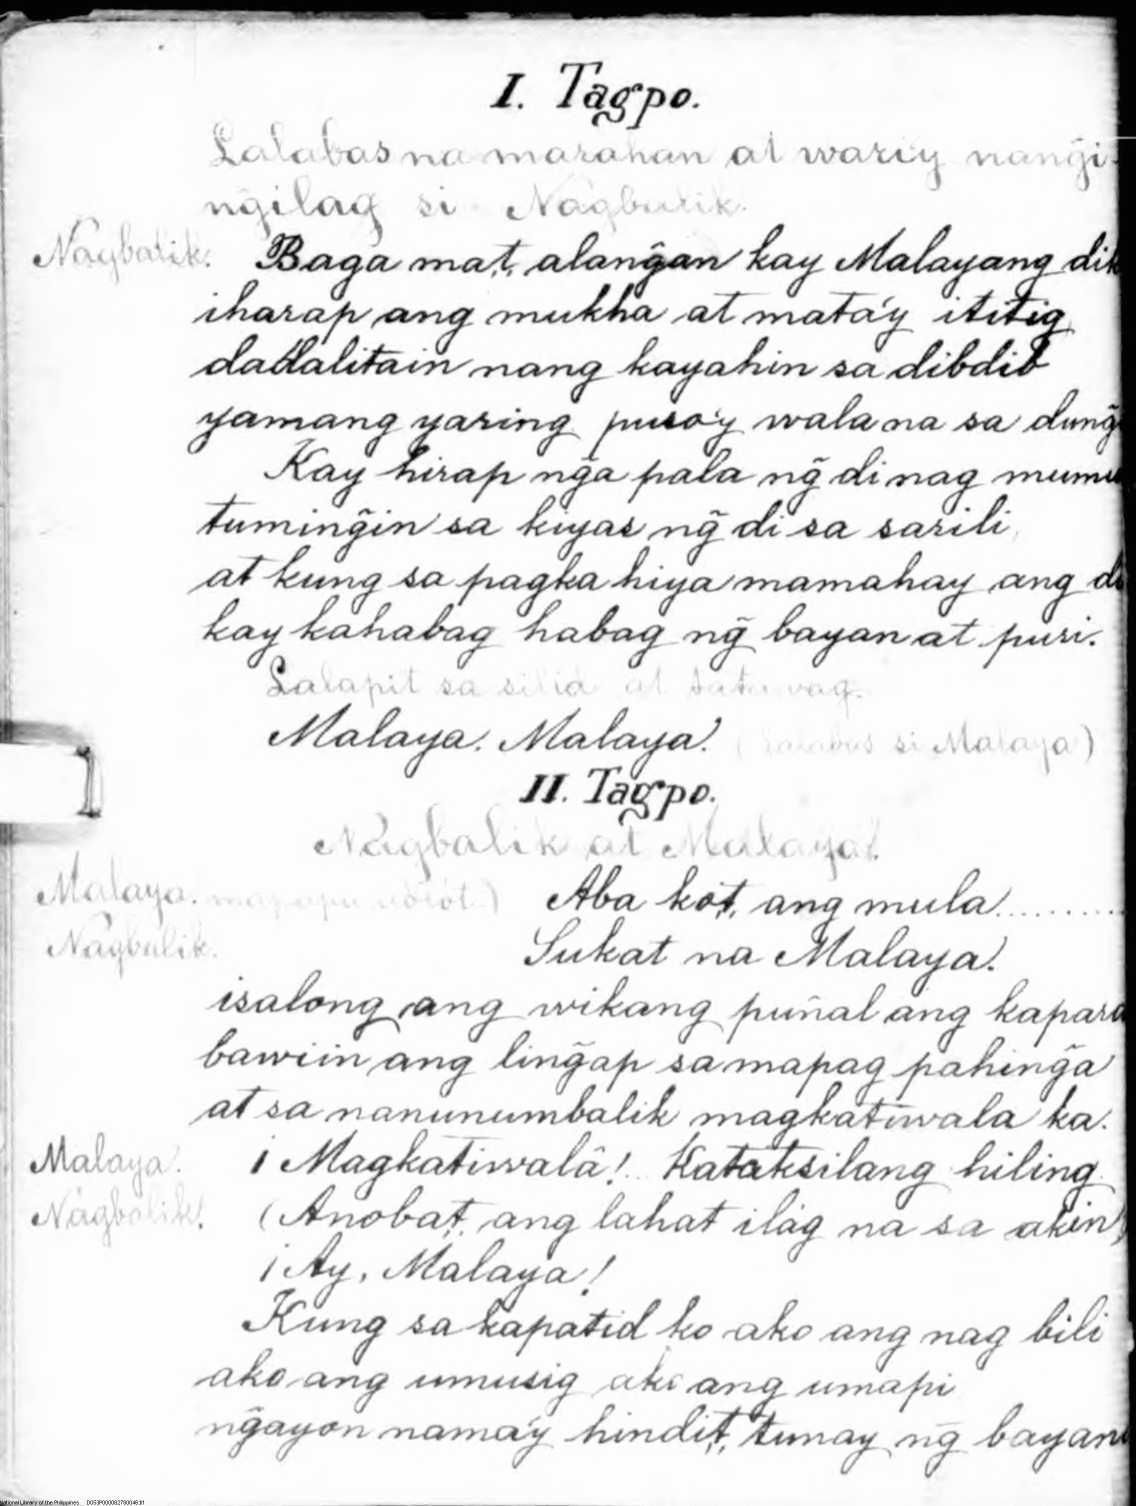 I. Tagpo.
Lalabas na marahan at wariy nang̃i-
ng̃ilag si Nagbalik.
Nagbalik. Baga mat, alang̃an kay Malayang
iharap ang mukha at matáy ititig
dadalitain nang kayahin sa dibdib
yamang yaring pusóy wala na sa
Kay hirap ng̃a pala ng̃ di nag
tuming̃in sa kiyas ng̃ di sa sarili
at kung sa pagka hiya mamahay ang
kay kahabag habag ng̃ bayan at puri.
Lalapit sa silid at tatawag.
Malaya. Malaya! (Lalabas si Malaya)
II. Tagpo.
Nagbalik at Malaya.
Malaya. ) Aba kót, ang mula..........
Nagbalik. Sukat na Malaya!
isalong ang wikang puñal ang kapara
bawiin ang ling̃ap sa mapag pahing̃a
at sa nanunumbalik magkatiwala ka.
Malaya. ¡Magkatiwalâ!.. Kataksilang hiling
Nagbalik. (Anobat, ang lahat ilág na sa akin)
¡Ay, Malaya!
Kung sa kapatid ko ako ang nag bili
ako ang umusig ako ang umapi
ng̃ayon namáy hindit, tunay ng̃
National Library of the Philippines